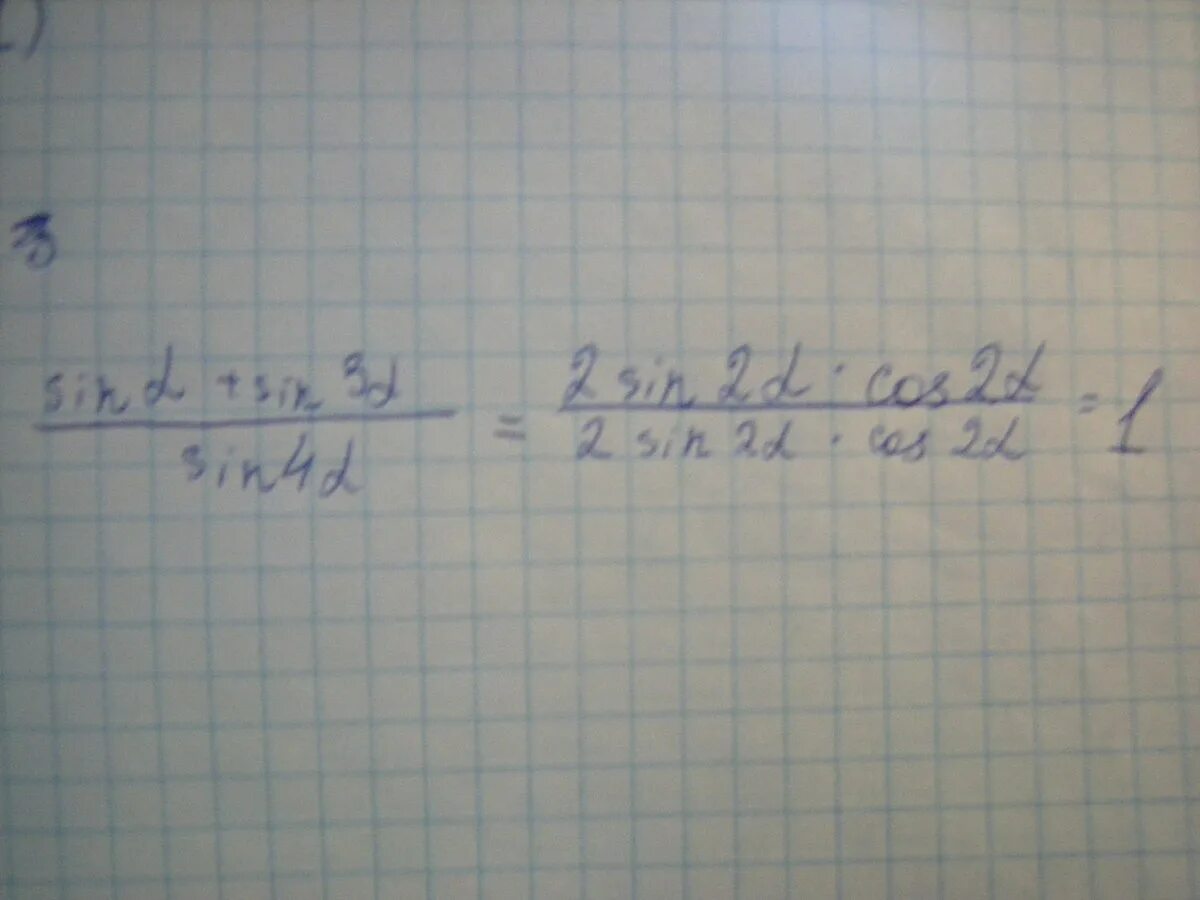 3
sin α + sin 3α / sin 4α = 2 sin 2α · cos 2α / 2 sin 2α · cos 2α = 1